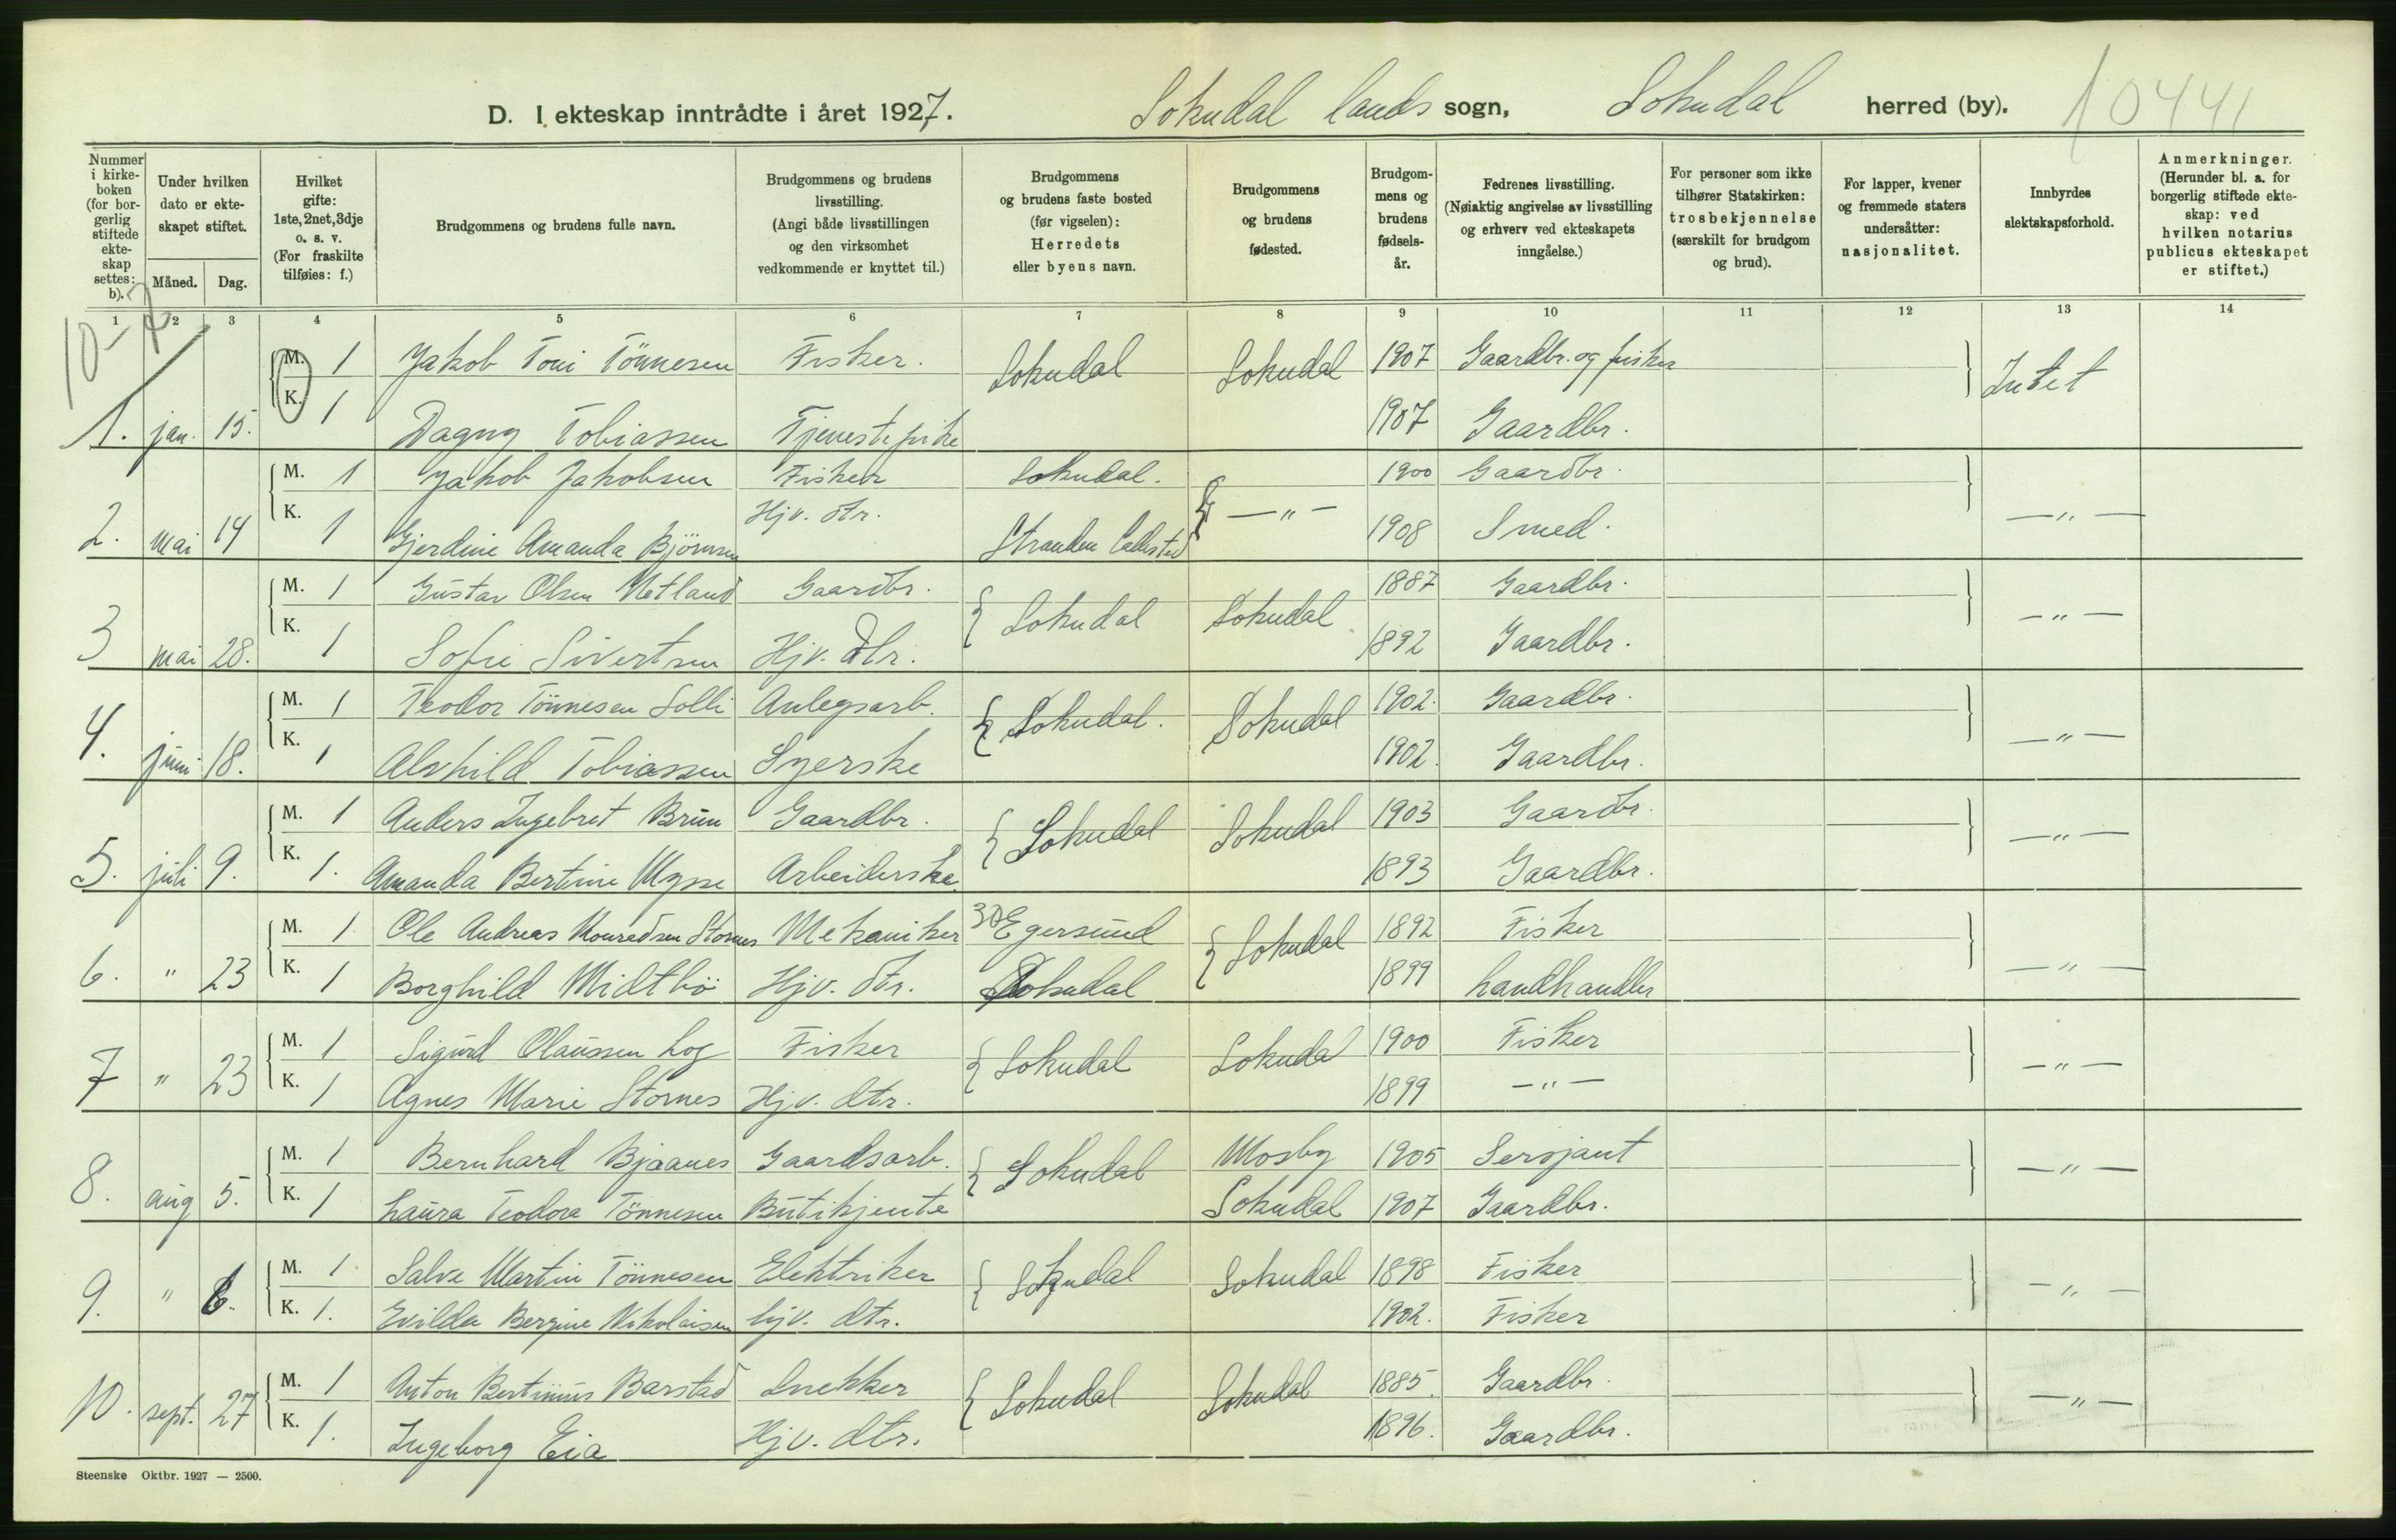 D. I ekteskap inntrådte i året 1927. Sokndal lands sogn, Sokndal herred (by). 10441
Nummer i kirkeboken (for borgerlig stiftede ekteskap settes: b).
Under hvilken dato er ekteskapet stiftet.
Måned. Dag.
Hvilket gifte: 1ste, 2net, 3dje o. s. v. (For fraskilte tilføies: f.)
Brudgommens og brudens fulle navn.
Brudgommens og brudens livsstilling. (Angi både livsstillingen og den virksomhet vedkommende er knyttet til.)
Brudgommens og brudens faste bosted (før vigselen): Herredets eller byens navn.
Brudgommens og brudens fødested.
Brudgommens og brudens fødselsår.
Fedrenes livsstilling. (Nøiaktig angivelse av livsstilling og erhverv ved ekteskapets inngåelse.)
For personer som ikke tilhører Statskirken: trosbekjennelse (særskilt for brudgom og brud).
For lapper, kvener og fremmede staters undersåtter: nasjonalitet.
Innbyrdes slektskapsforhold.
Anmerkninger. (Herunder bl. a. for borgerlig stiftede ekteskap: ved hvilken notarius publicus ekteskapet er stiftet.)
1 2 3 4 5 6 7 8 9 10 11 12 13 14
M. 1 Jakob Toni Tönnesen Fisker. Sokndal Sokndal 1907 Gaardbr. og fisker Intet
1. jan. 15. K. 1 Dagny Tobiassen Tjenestepike 1907 Gaardbr.
M. 1 Jakob Jakobsen Fisker Sokndal. — " — 1900 Gaardbr. — " —
2. mai 14 K. 1 Gjerdine Amanda Björnsen Hjv. dtr. Stranden Ladested 1908 Smed.
M. 1 Gustav Olsen Netland Gaardbr. Sokndal Sokndal 1887 Gaardbr. — " —
3 mai 28. K. 1 Sofie Sivertsen Hjv. dtr. 1892 Gaardbr.
M. 1 Teodor Tönnesen Solli Anlegsarb. Sokndal. Sokndal 1902. Gaardbr. — " —
4. juni 18. K. 1 Alvhild Tobiassen Syerske 1902. Gaardbr.
M. 1 Anders Ingebret Brun Gaardbr. Sokndal Sokndal 1903 Gaardbr. — " —
5. juli 9. K. 1. Amanda Bertine Mysse Arbeiderske 1893 Gaardbr.
M. 1 Ole Andreas Konradsen Stornes Mekaniker Egersund Sokndal 1892 Fisker — " —
6. " 23 K. 1 Borghild Midtbö Hjv. dtr. Sokndal 1899 Landhandler
M. 1 Sigurd Olaussen Log Fisker Sokndal Sokndal 1900 Fisker — " —
7 " 23 K. 1 Agnes Marie Stornes Hjv. dtr. 1899 — " —
M. 1 Bernhard Bjaanes Gaardsarb. Sokndal Mosby 1905 Sersjant — " —
8. aug 5. K. 1 Laura Teodora Tönnesen Butikjente Sokndal 1907 Gaardbr.
M. 1 Salve Martin Tönnesen Elektriker Sokndal Sokndal 1898 Fisker — " —
9. " 6. K. 1. Evilda Bergine Nikolaisen hjv. dtr. 1902. Fisker
M. 1 Anton Bertinius Barstad Snekker Sokndal Sokndal 1885. Gaardbr. — " —
10. sept. 27 K. 1. Ingeborg Eia Hjv. dtr. 1896. Gaardbr.
Steenske Oktbr. 1927 — 2500.